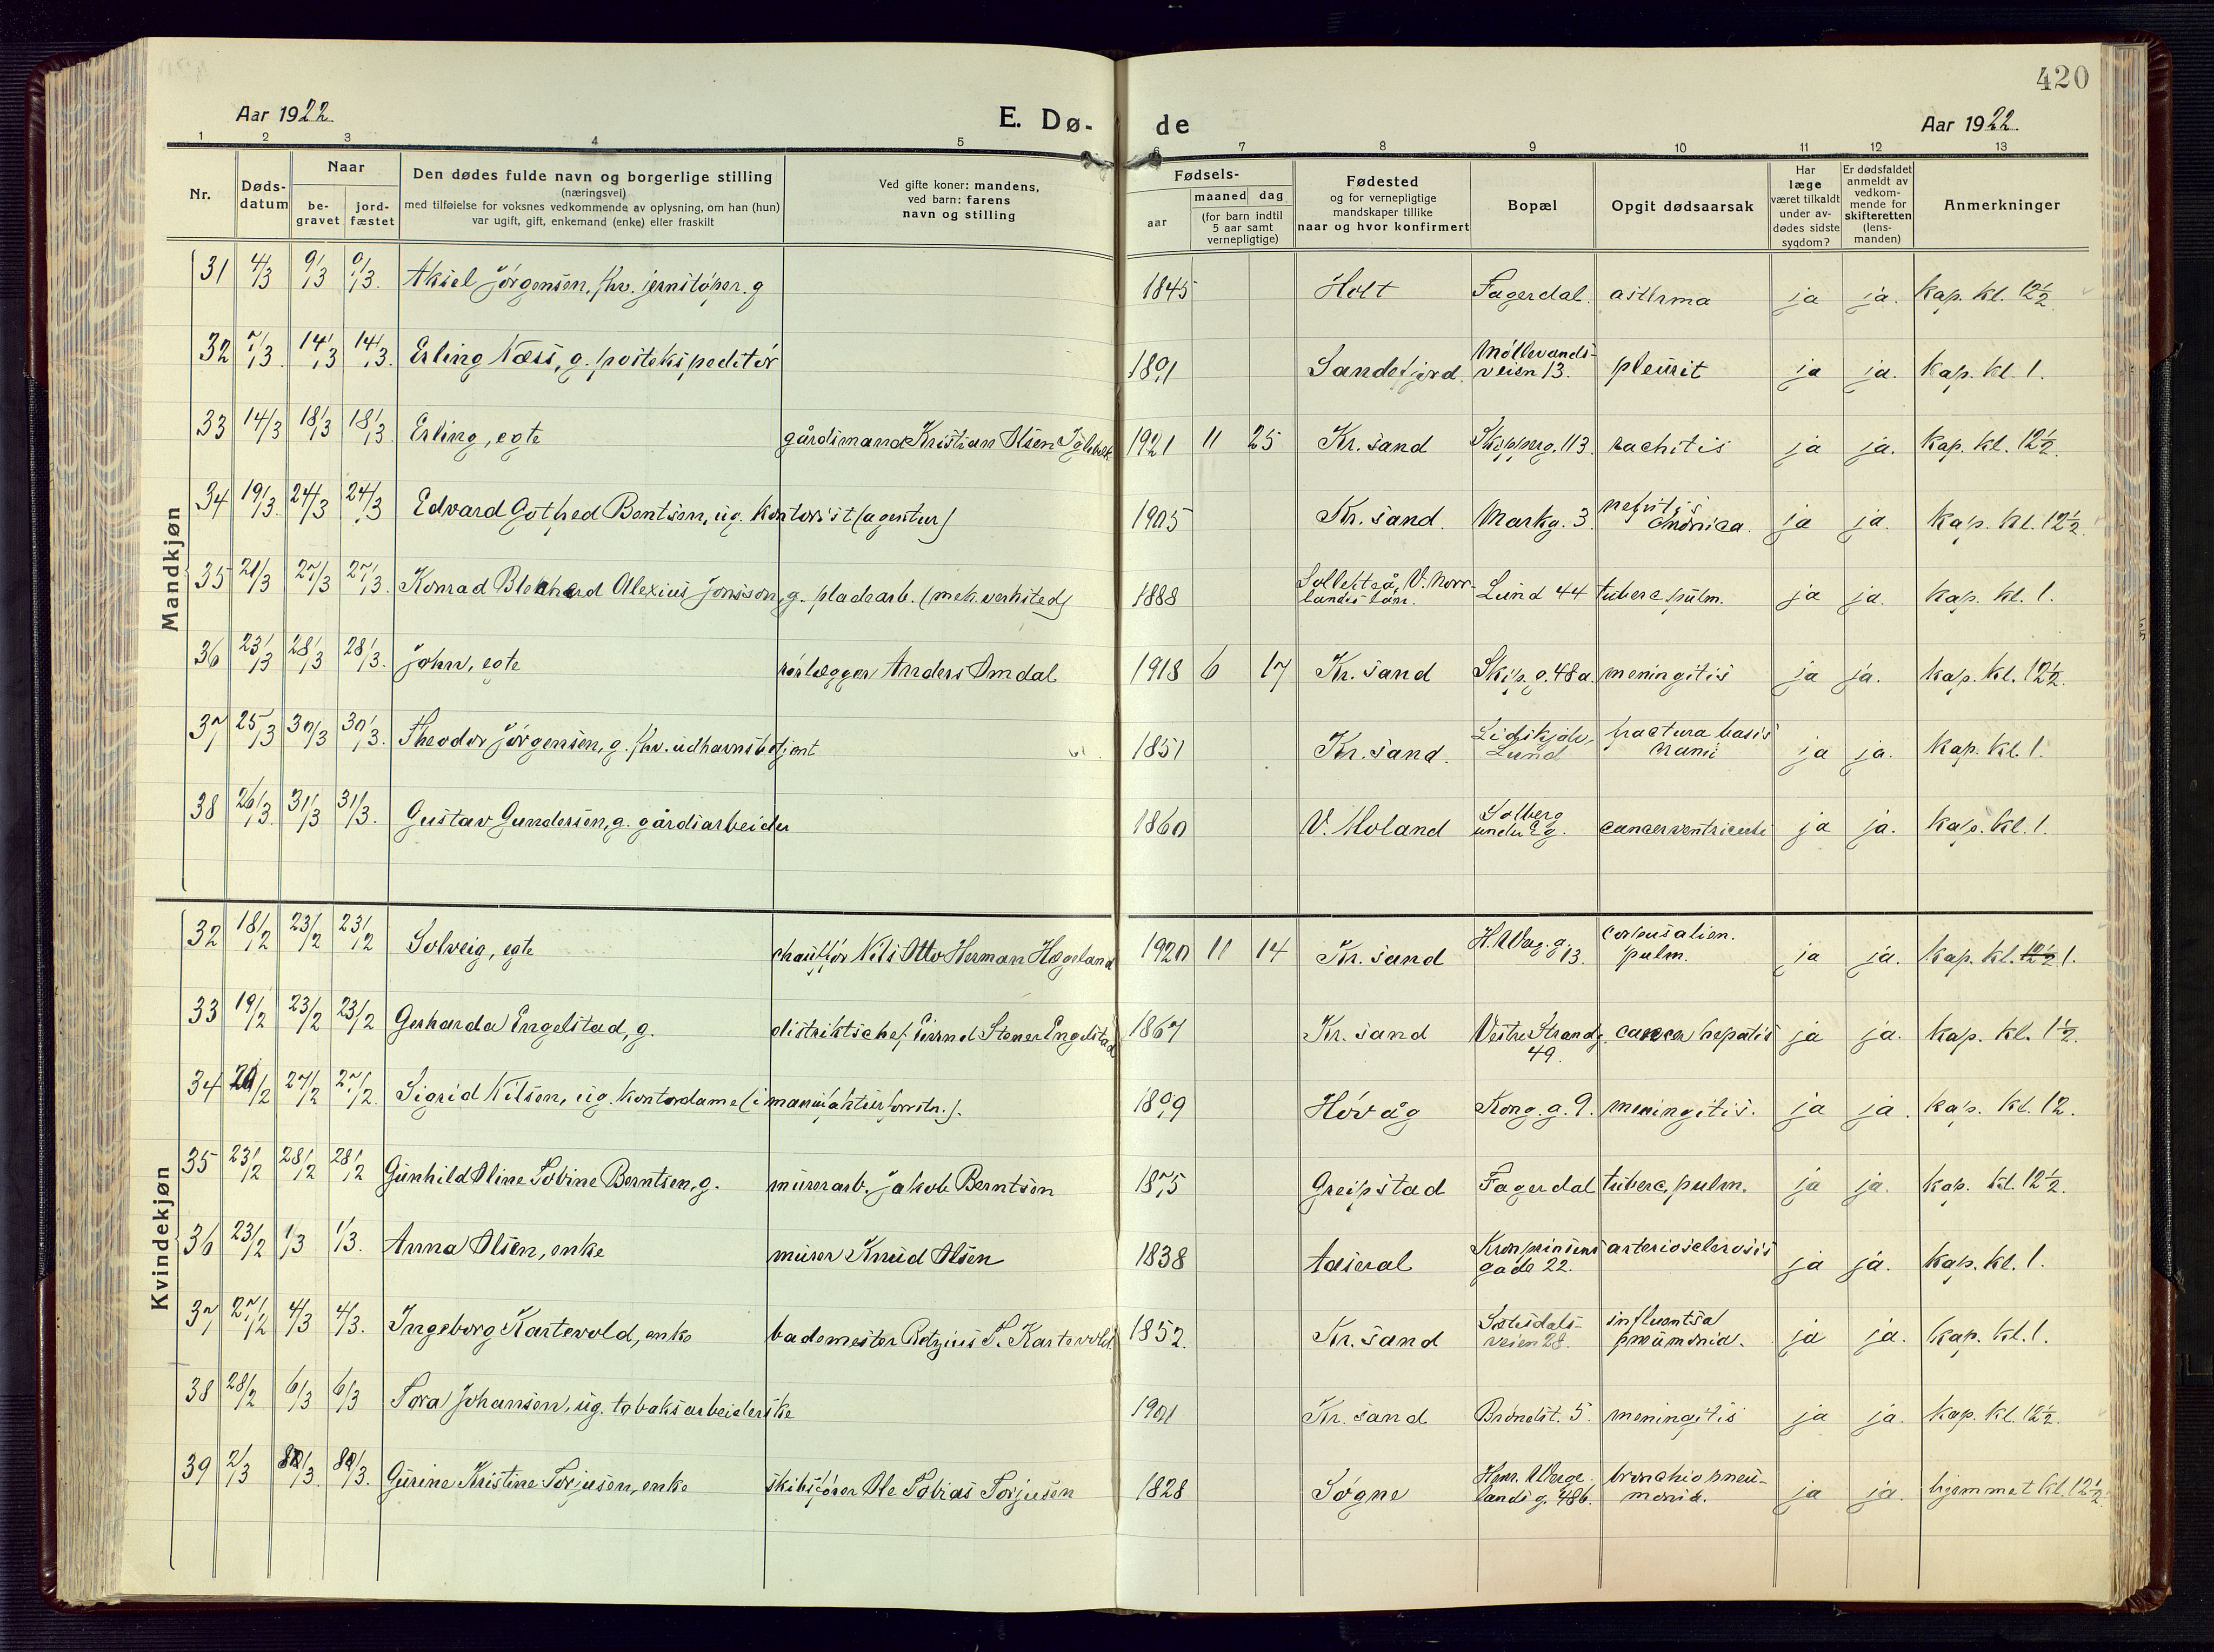 420
Aar 1922. E. Dø- de Aar 1922.
1 2 3 4 5 6 7 8 9 10 11 12 13
Nr.
Døds-
datum
Naar
be-
gravet
jord-
fæstet
Den dødes fulde navn og borgerlige stilling
(næringsvei)
med tilføielse for voksnes vedkommende av oplysning, om han (hun)
var ugift, gift, enkemand (enke) eller fraskilt
Ved gifte koner: mandens,
ved barn: farens
navn og stilling
Fødsels-
aar
maaned dag
(for barn indtil
5 aar samt
vernepligtige)
Fødested
og for vernepligtige
mandskaper tillike
naar og hvor konfirmert
Bopæl
Opgit dødsaarsak
Har
læge
været tilkaldt
under av-
dødes sidste
sygdom?
Er dødsfaldet
anmeldt av
vedkom-
mende for
skifteretten
(lens-
manden)
Anmerkninger
Mandkjøn
31 4/3 9/3 9/3. Aksel Jörgensen, fhv. jernstöper. g 1845 Holt Fagerdal. asthma ja ja. kap. kl. 12½
32 7/3 14/3 14/3. Erling Næss, g. postekspeditör 1891 Sandefjord. Möllevands-
veien 13. pleurit ja ja. kap. kl. 1.
33 14/3 18/3 18/3. Erling, egte gårdsmand Kristian Olsen 1921 11 25 Kr.sand Skipperg. 113 rachitis ja ja. kap. kl. 12½.
34 19/3. 24/3 24/3 Edvard Gothed Bentsen, ug. kontorist (agentur) 1905 Kr.sand. Markg. 3 nefritis
chronica. ja ja. kap. kl. 12½
35 21/3 27/3 27/3 Konrad Alexius Jonsson, g. pladearb. (mek. verksted) 1888 Sollefteå, V. Norr-
lands län. Lund 44 tuberc. pulm. ja ja. kap. kl. 1.
36 23/3 28/3 28/3. John, egte rörlægger Anders Omdal 1918 6 17 Kr.sand Skip. g. 48a. meningitis ja ja. kap. kl. 12½.
37 25/3 30/3 30/3. Theodor Jörgensen, g. fhv. udhavnsbetjent 1851 Kr.sand.
Lund fractura basis
cranii ja ja. kap. kl. 1.
38 26/3. 31/3 31/3. Gustav Gundersen, g. gårdsarbeider 1860 V. Moland Solberg
under Eg. cancer ventriculi ja ja. kap. kl. 1.
Kvindekjøn
32 18/2 23/2 23/2 Solveig, egte chaufför Nils Otto Herman Hægeland 1920 11 14 Kr.sand H. Werg. g. 13. corpus alien.
pulm. ja ja. kap. kl. 12½ 1.
33 19/2 23/2 23/2 Gerharda Engelstad, g. distriktschef Eivind Stener Engelstad 1867 Kr.sand Vestre Strandg.
49. cancer hepatis ja ja. kap. kl. 1½.
34 20/2 27/2 27/2. Sigrid Nilsen, ug. kontordame (i manufakturforretn.). 1899 Hövåg Kong. g. 9. meningitis. ja ja. kap. kl. 12.
35 23/2 28/2 28/2 Gunhild Oline Tobine Berntsen, g. murerarb. Jakob Berntsen 1875 Greipstad Fagerdal tuberc. pulm. ja ja. kap. kl. 12½.
36 23/2 1/3 1/3. Anna Olsen, enke murer Knud Olsen 1838 Aaseral Kronprinsens
gade 22. arteriosclerosis ja ja. kap. kl. 1.
37 27/2 4/3 4/3. Ingeborg Kartevold, enke bademester Retzius T. Kartevold. 1852. Kr.sand Setesdals-
veien 28. influentsa
pneumonia. ja ja. kap. kl. 1.
38 28/2 6/3 6/3 Tora Johansen, ug. tobaksarbeiderske 1901 Kr.sand Bröndst. 5. meningitis ja ja. kap. kl. 12½.
39 2/3 8/3. 8/3. Gurine Kristine Torjusen, enke skibsförer Ole Tobias Torjusen 1828 Sögne Henr. Werge-
lands g. 48b. bronchiopneu-
monia. ja ja. hjemmet kl. 12½